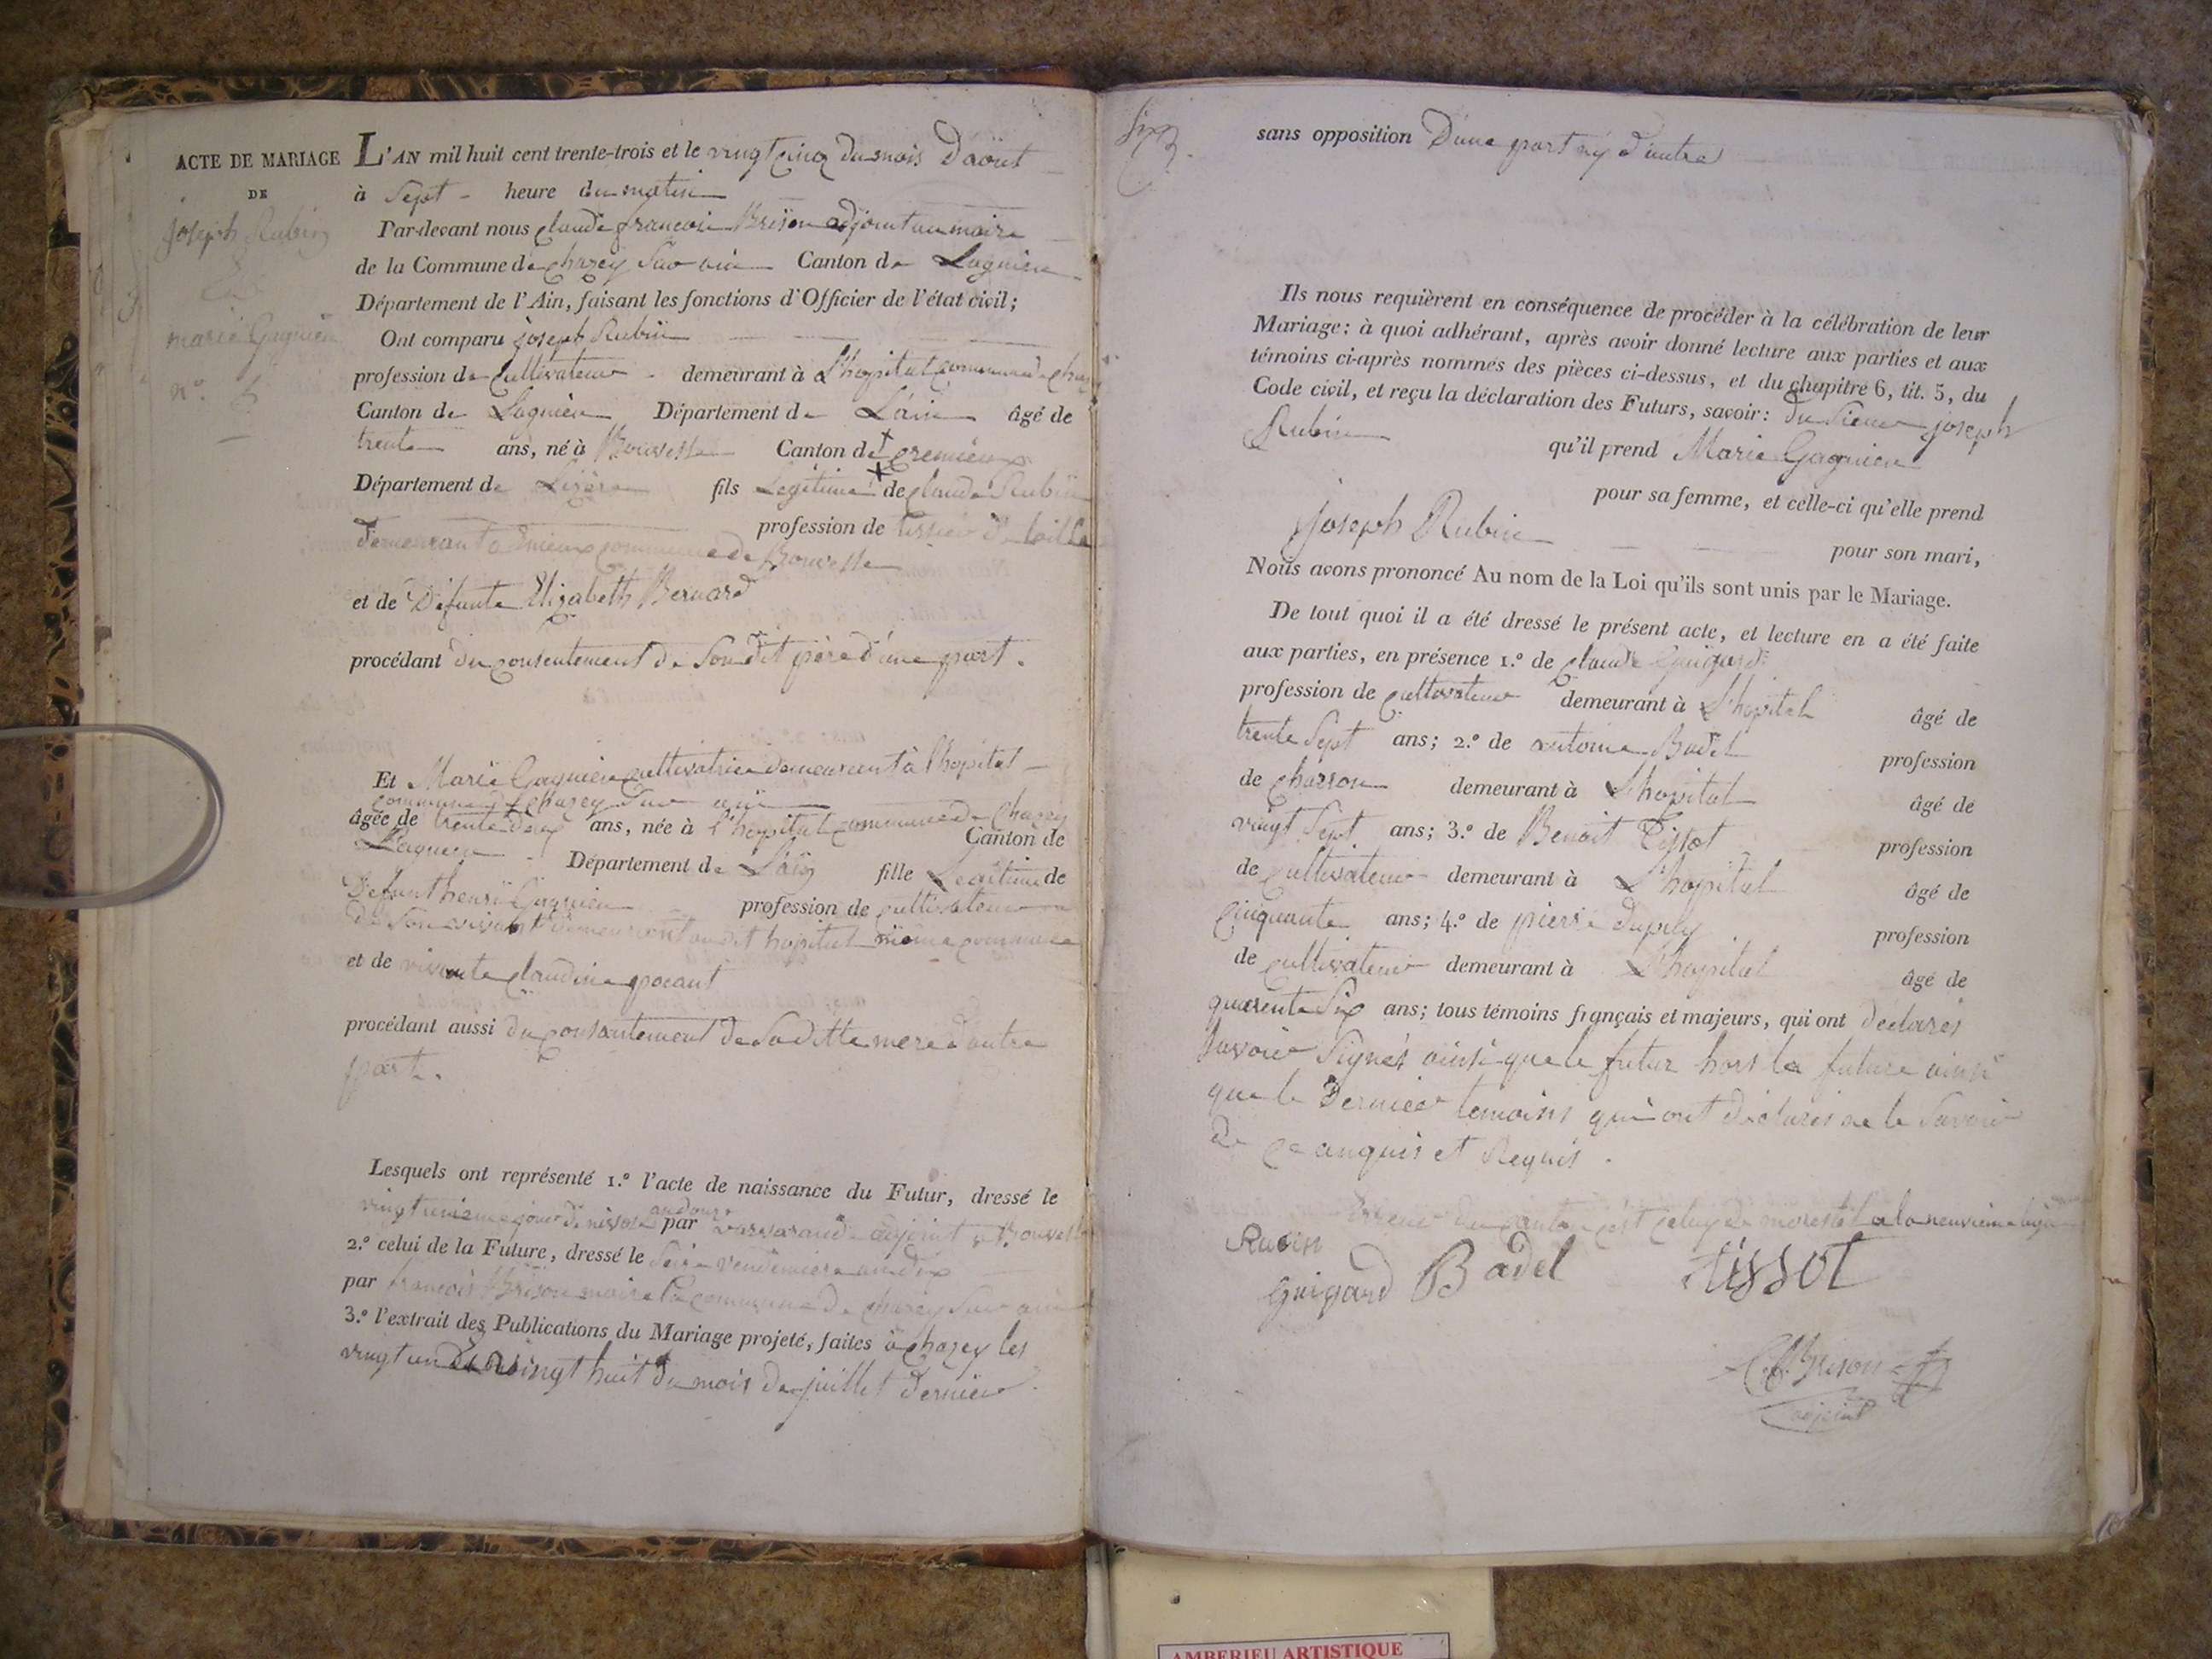 ACTE DE MARIAGE
DE
joseph Rubin
&
marie Gagnieu
n.º 5
L'AN mil huit cent trente-trois et le vingt cinq du mois D'aöut
à Sept heure du matin
Par-devant nous claude francois Brison adjoint au maire
de la Commune de chazey Sur ain Canton de Lagnieu
Département de l'Ain, faisant les fonctions d'Officier de l'état civil;
Ont comparu joseph Rubin
profession de Cultivateur demeurant à L'hopital commune de chazey
Canton de Lagnieu Département de L'ain âgé de
trente ans, né à Bouvesse Canton de + cremieux
Département de Lizere fils Legitime + de claude Rubin
profession de tissier De toille
demeurant a commune de Bouvesse
et de Défunte Elizabeth Bernard
procédant du consentement de Son dit père d'une part.
Et Marie Gagnieu cultivatrice demeurant à l'hopital
commune de chazey Sur ain
âgée de trente deux ans, née à l'hopital commune de Chazey
Canton de
Lagnieu Département de L'ain fille Legitime de
Defunt henri Gagnieu profession de cultivateur
de Son vivant demeurant au dit hopital même commune
et de vivante claudine pocant
procédant aussi du consantement de Sa ditte mere d'autre
part.
Lesquels ont représenté 1.º l'acte de naissance du Futur, dressé le
vingt unieme jour de nivose an douze par adjoint a Bouvesse
2.º celui de la Future, dressé le Seize vendemiere an dix
par francois Brison maire la commune de chazey Sur ain
3.º l'extrait des Publications du Mariage projeté, faites à chazey les
vingt un et vingt huit du mois de juillet dernier
sans opposition D'une part ny d'autre
Ils nous requièrent en conséquence de procéder à la célébration de leur
Mariage: à quoi adhérant, après avoir donné lecture aux parties et aux
témoins ci-après nommés des pièces ci-dessus, et du chapitre 6, tit. 5, du
Code civil, et reçu la déclaration des Futurs, savoir: du Sieur joseph
Rubin qu'il prend Marie Gagnieu
pour sa femme, et celle-ci qu'elle prend
joseph Rubin pour son mari,
Nous avons prononcé Au nom de la Loi qu'ils sont unis par le Mariage.
De tout quoi il a été dressé le présent acte, et lecture en a été faite
aux parties, en présence 1.º de claude Guigard
profession de cultivateur demeurant à L'hopital âgé de
trente Sept ans; 2.º de antoine Badel profession
de charron demeurant à L'hopital âgé de
vingt Sept ans; 3.º de Benoit Tissot profession
de cultivateur demeurant à L'hopital âgé de
cinquante ans; 4.º de pierre dupuly profession
de cultivateur demeurant à L'hopital âgé de
quarente Six ans; tous témoins français et majeurs, qui ont déclarés
Savoir Signés ainsi que le futur hors la future ainsi
que le Dernier temoins qui ont déclarés ne le Savoir
de ce anquis et Requis.
Erreur du canton c'est celuy de morestel a la neuvieme ligne
Rubin
Guigard Badel tissot
C.f. Brison
adjoint
AMBERIEU ARTISTIQUE